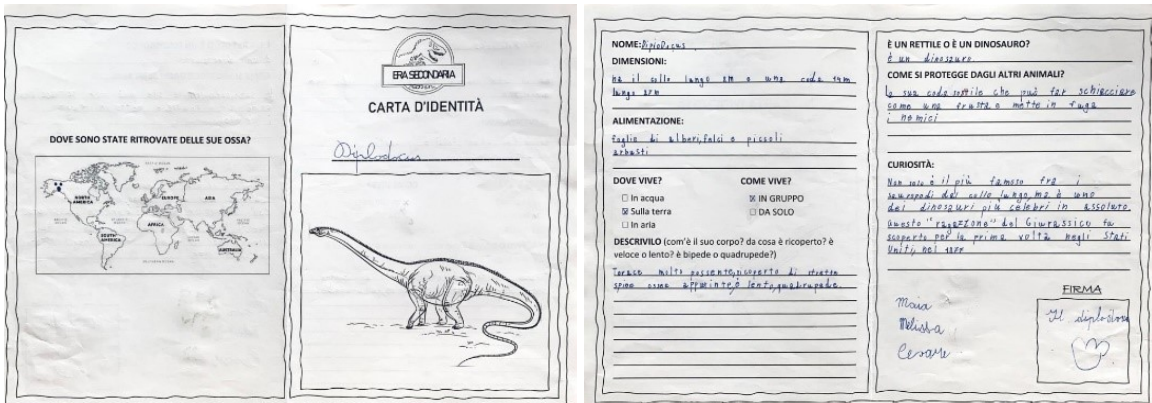 DOVE SONO STATE RITROVATE DELLE SUE OSSA?
NORTH
AMERICA
EUROPE
ASIA
AFRICA
SOUTH
AMERICA
AUSTRALIA
ERA SECONDARIA
CARTA D'IDENTITÀ
Diplodocus
NOME: Diplodocus
DIMENSIONI:
ha il collo lungo 8m e una coda 14m
lungo 27m
ALIMENTAZIONE:
foglie di alberi, felci e piccoli
arbusti
DOVE VIVE?
☐ In acqua
☒ Sulla terra
☐ In aria
COME VIVE?
☒ IN GRUPPO
☐ DA SOLO
DESCRIVILO (com'è il suo corpo? da cosa è ricoperto? è
veloce o lento? è bipede o quadrupede?)
Torace molto possente, ricoperto di strette
spine ossee appuntite, è lento, quadrupede.
È UN RETTILE O È UN DINOSAURO?
è un dinosauro
COME SI PROTEGGE DAGLI ALTRI ANIMALI?
la sua coda sottile che può far schiacciare
come una frusta e mette in fuga
i nemici
CURIOSITÀ:
Non solo è il più famoso fra i
sauropodi dal collo lungo, ma è uno
dei dinosauri più celebri in assoluto.
Questo "ragazzone" del Giurassico fu
scoperto per la prima volta negli Stati
Uniti, nel 1877
Maia
Melissa
Cesare
FIRMA
Il diplodocus